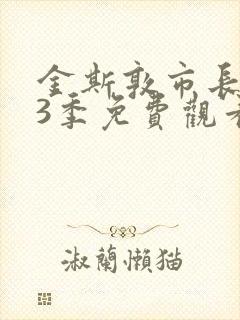 金斯敦市長
3季免費觀看
淑蘭懶猫